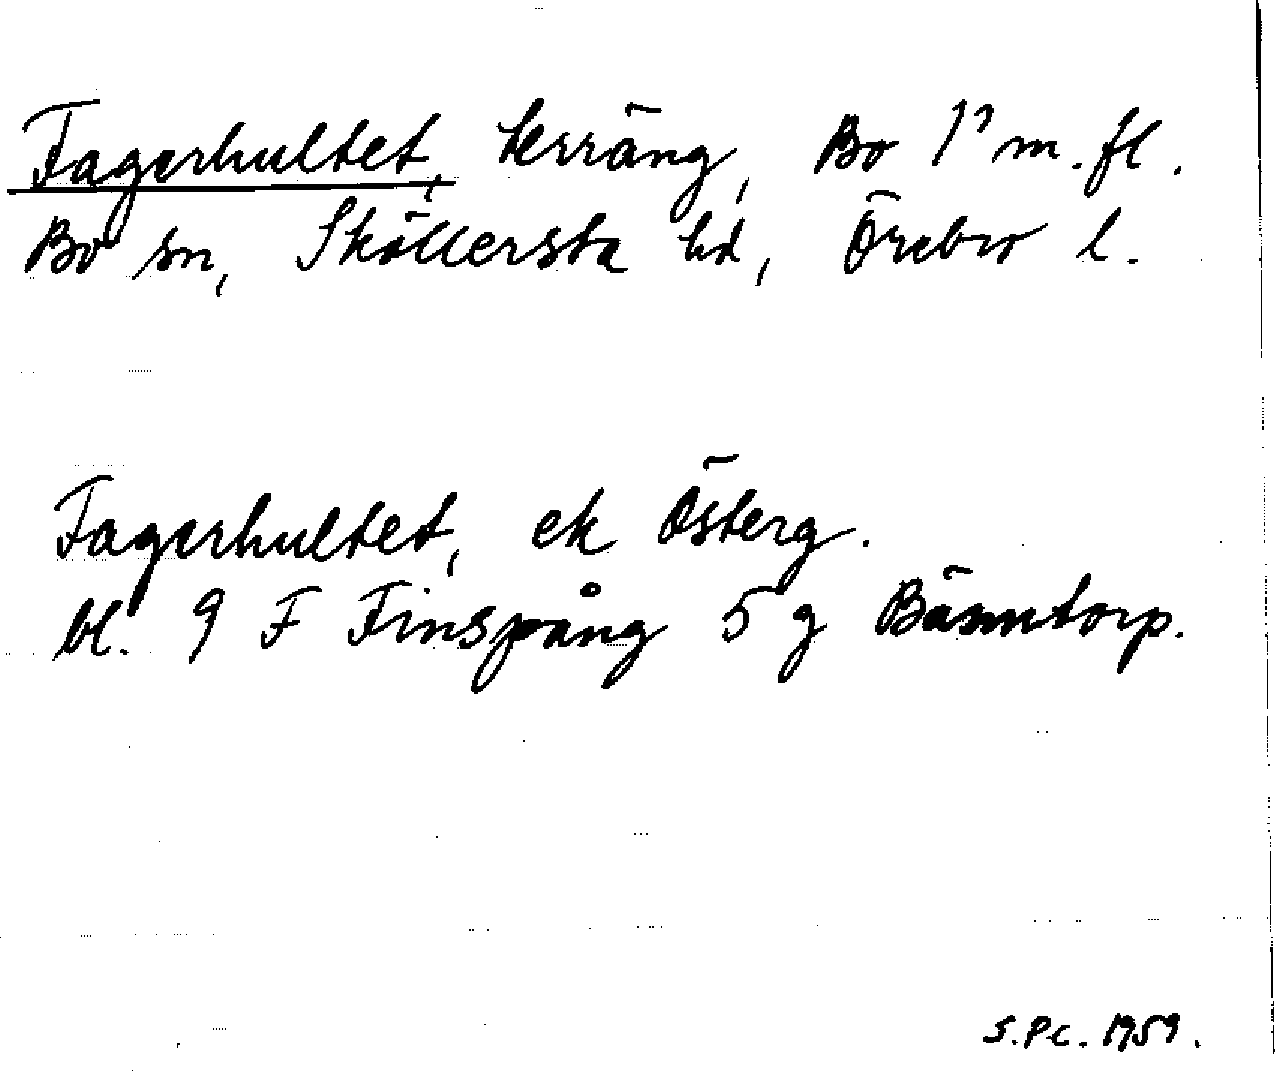 Fagerhultet, terräng, Bo 1⁷ m.fl.
Bo sn, Sköllersta hd, Örebro l.
Fagerhultet, ek Österg.
bl. 9 F Finspång 5 g Bäsmtorp.
S.P.C. 1959.